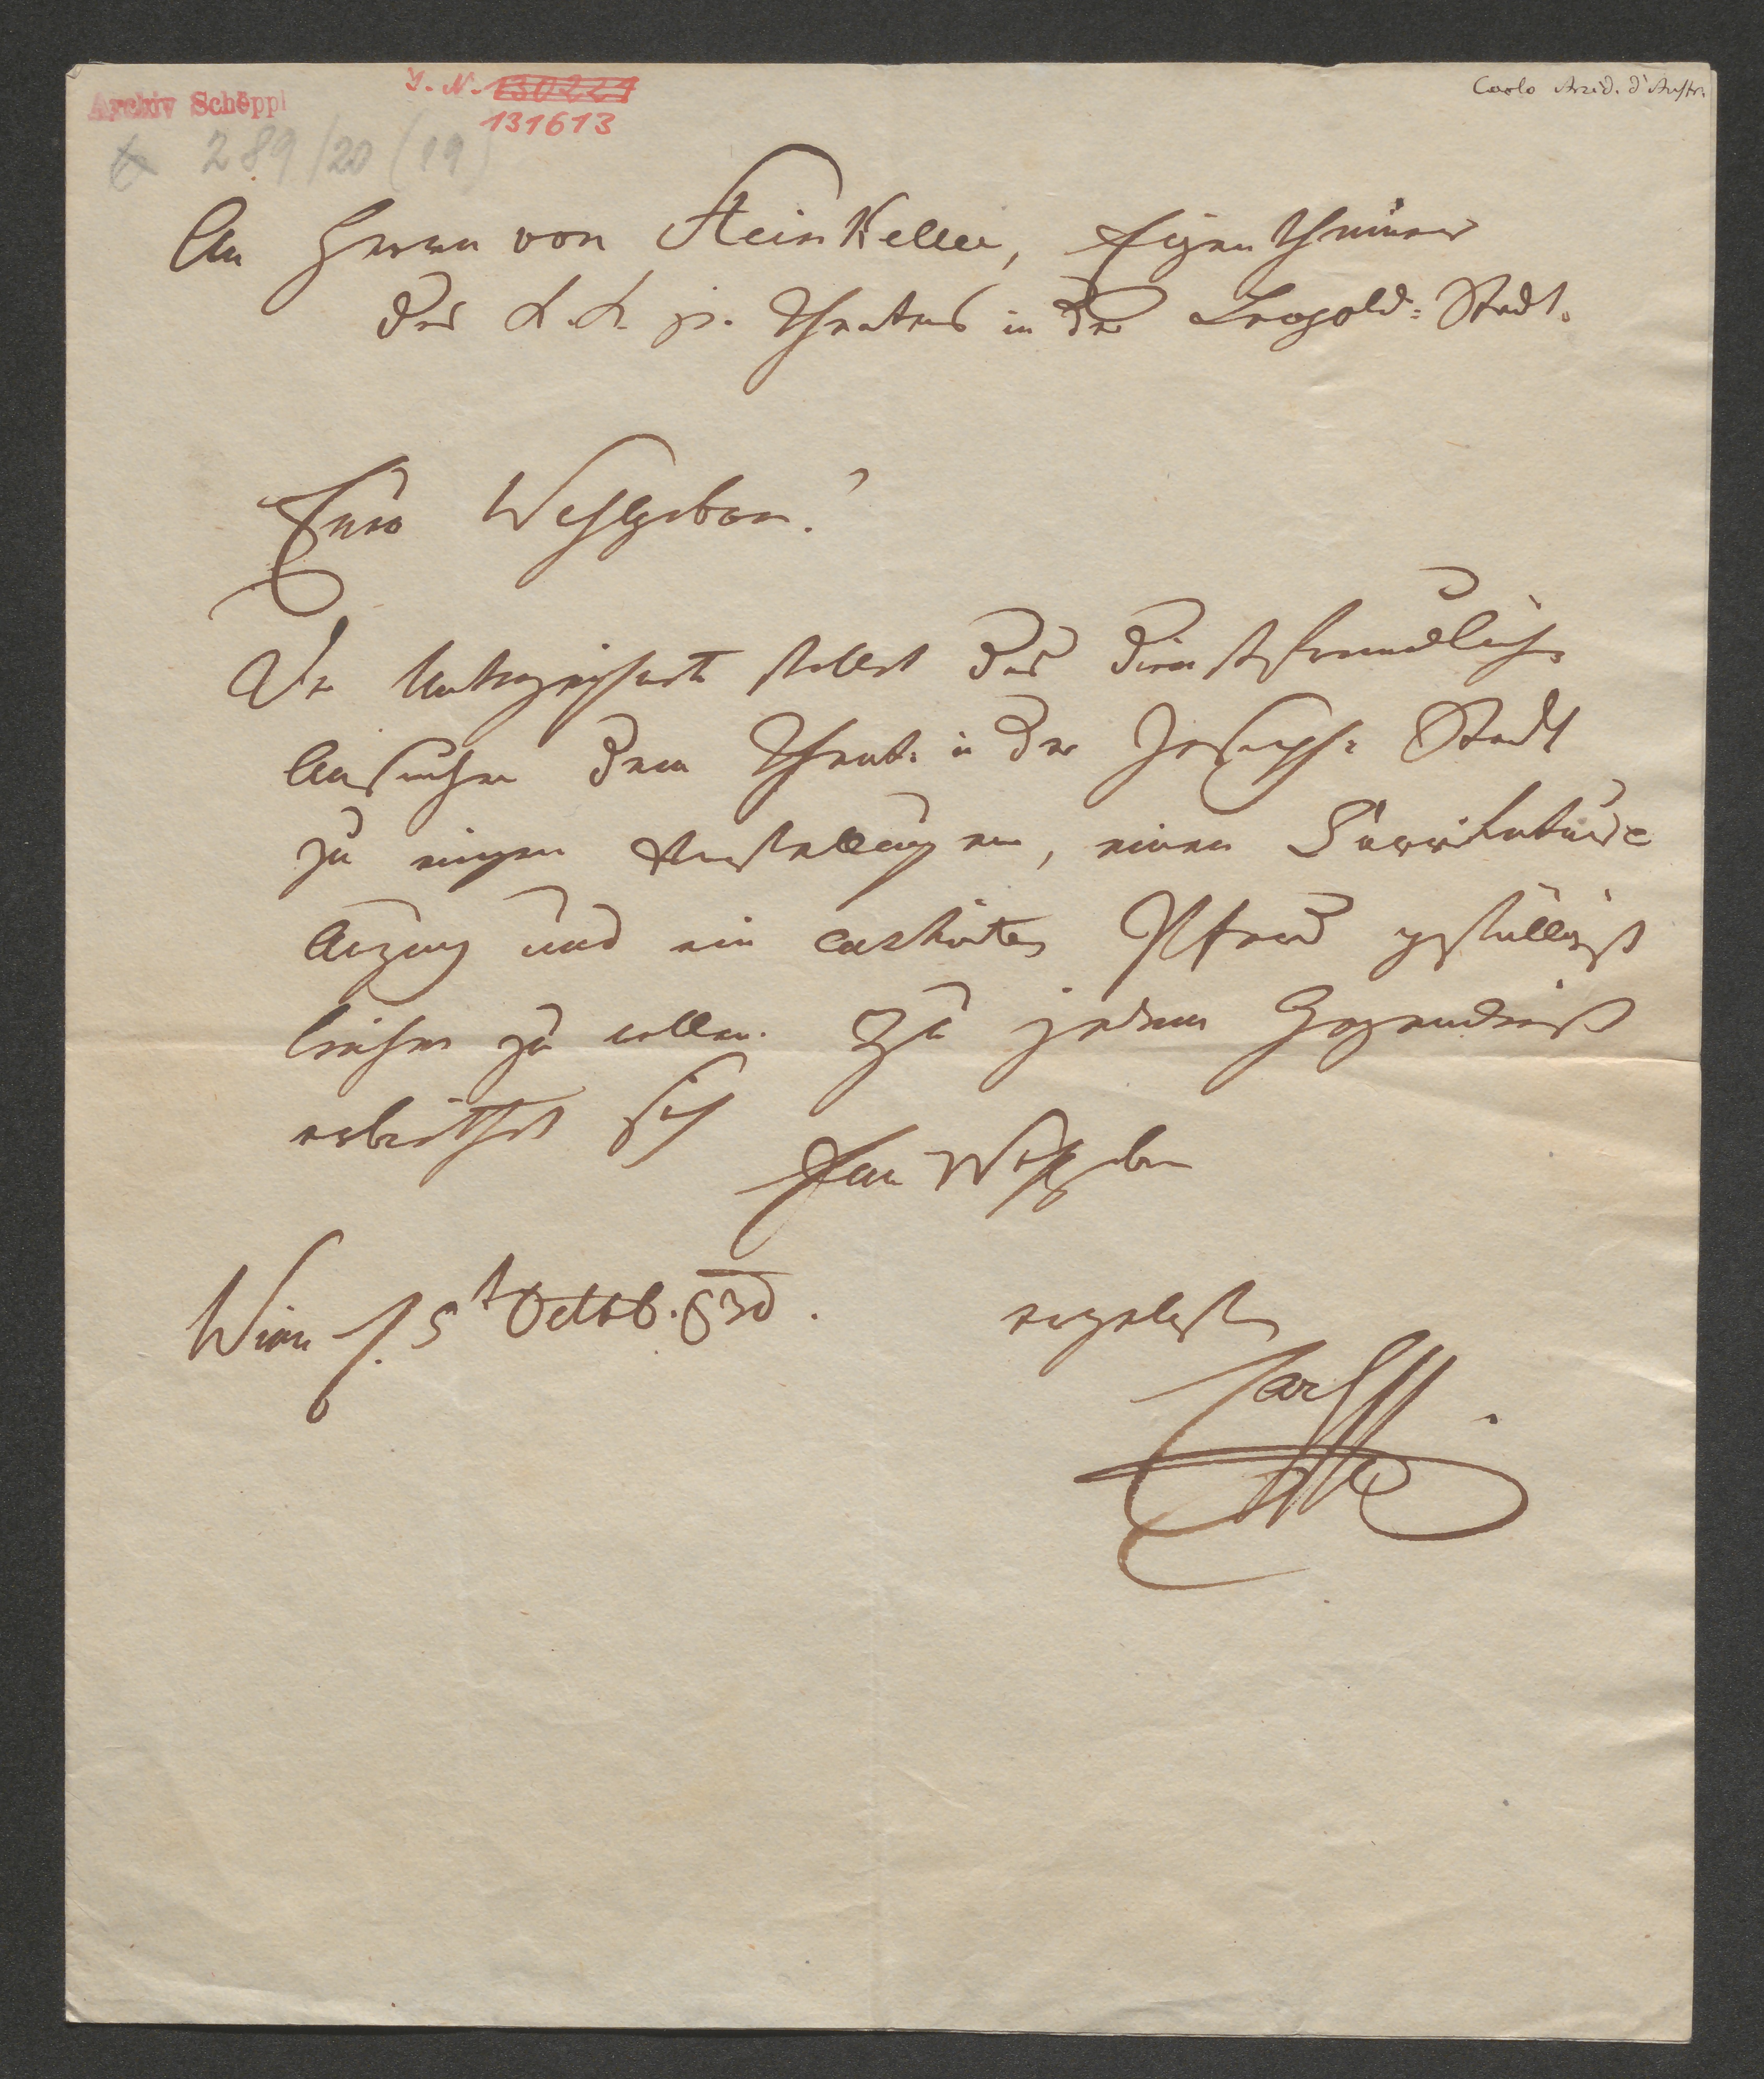 Archiv Schöppl
I. N. 130221
131613
289/20 (19)
Carlo Arcid. d'Austr.
An Herrn von Steinkeller, Eigenthümer
des k. k. p. Theaters in der Leopold= Stadt.
Euer Wohlgeborn!
Der Unterzeichnete stellet das dienstfreundliche
Ansuchen dem Theat. in der Joseph= Stadt
zu einigen Vorstellungen, einen
Anzug und ein cachirtes Pferd gefälligst
leihen zu wollen. Zu jedem Gegendienst
erbiethet sich
Euer Wohlgeborn
Wien d. 5t Octob. 830.
ergebenster
Carl